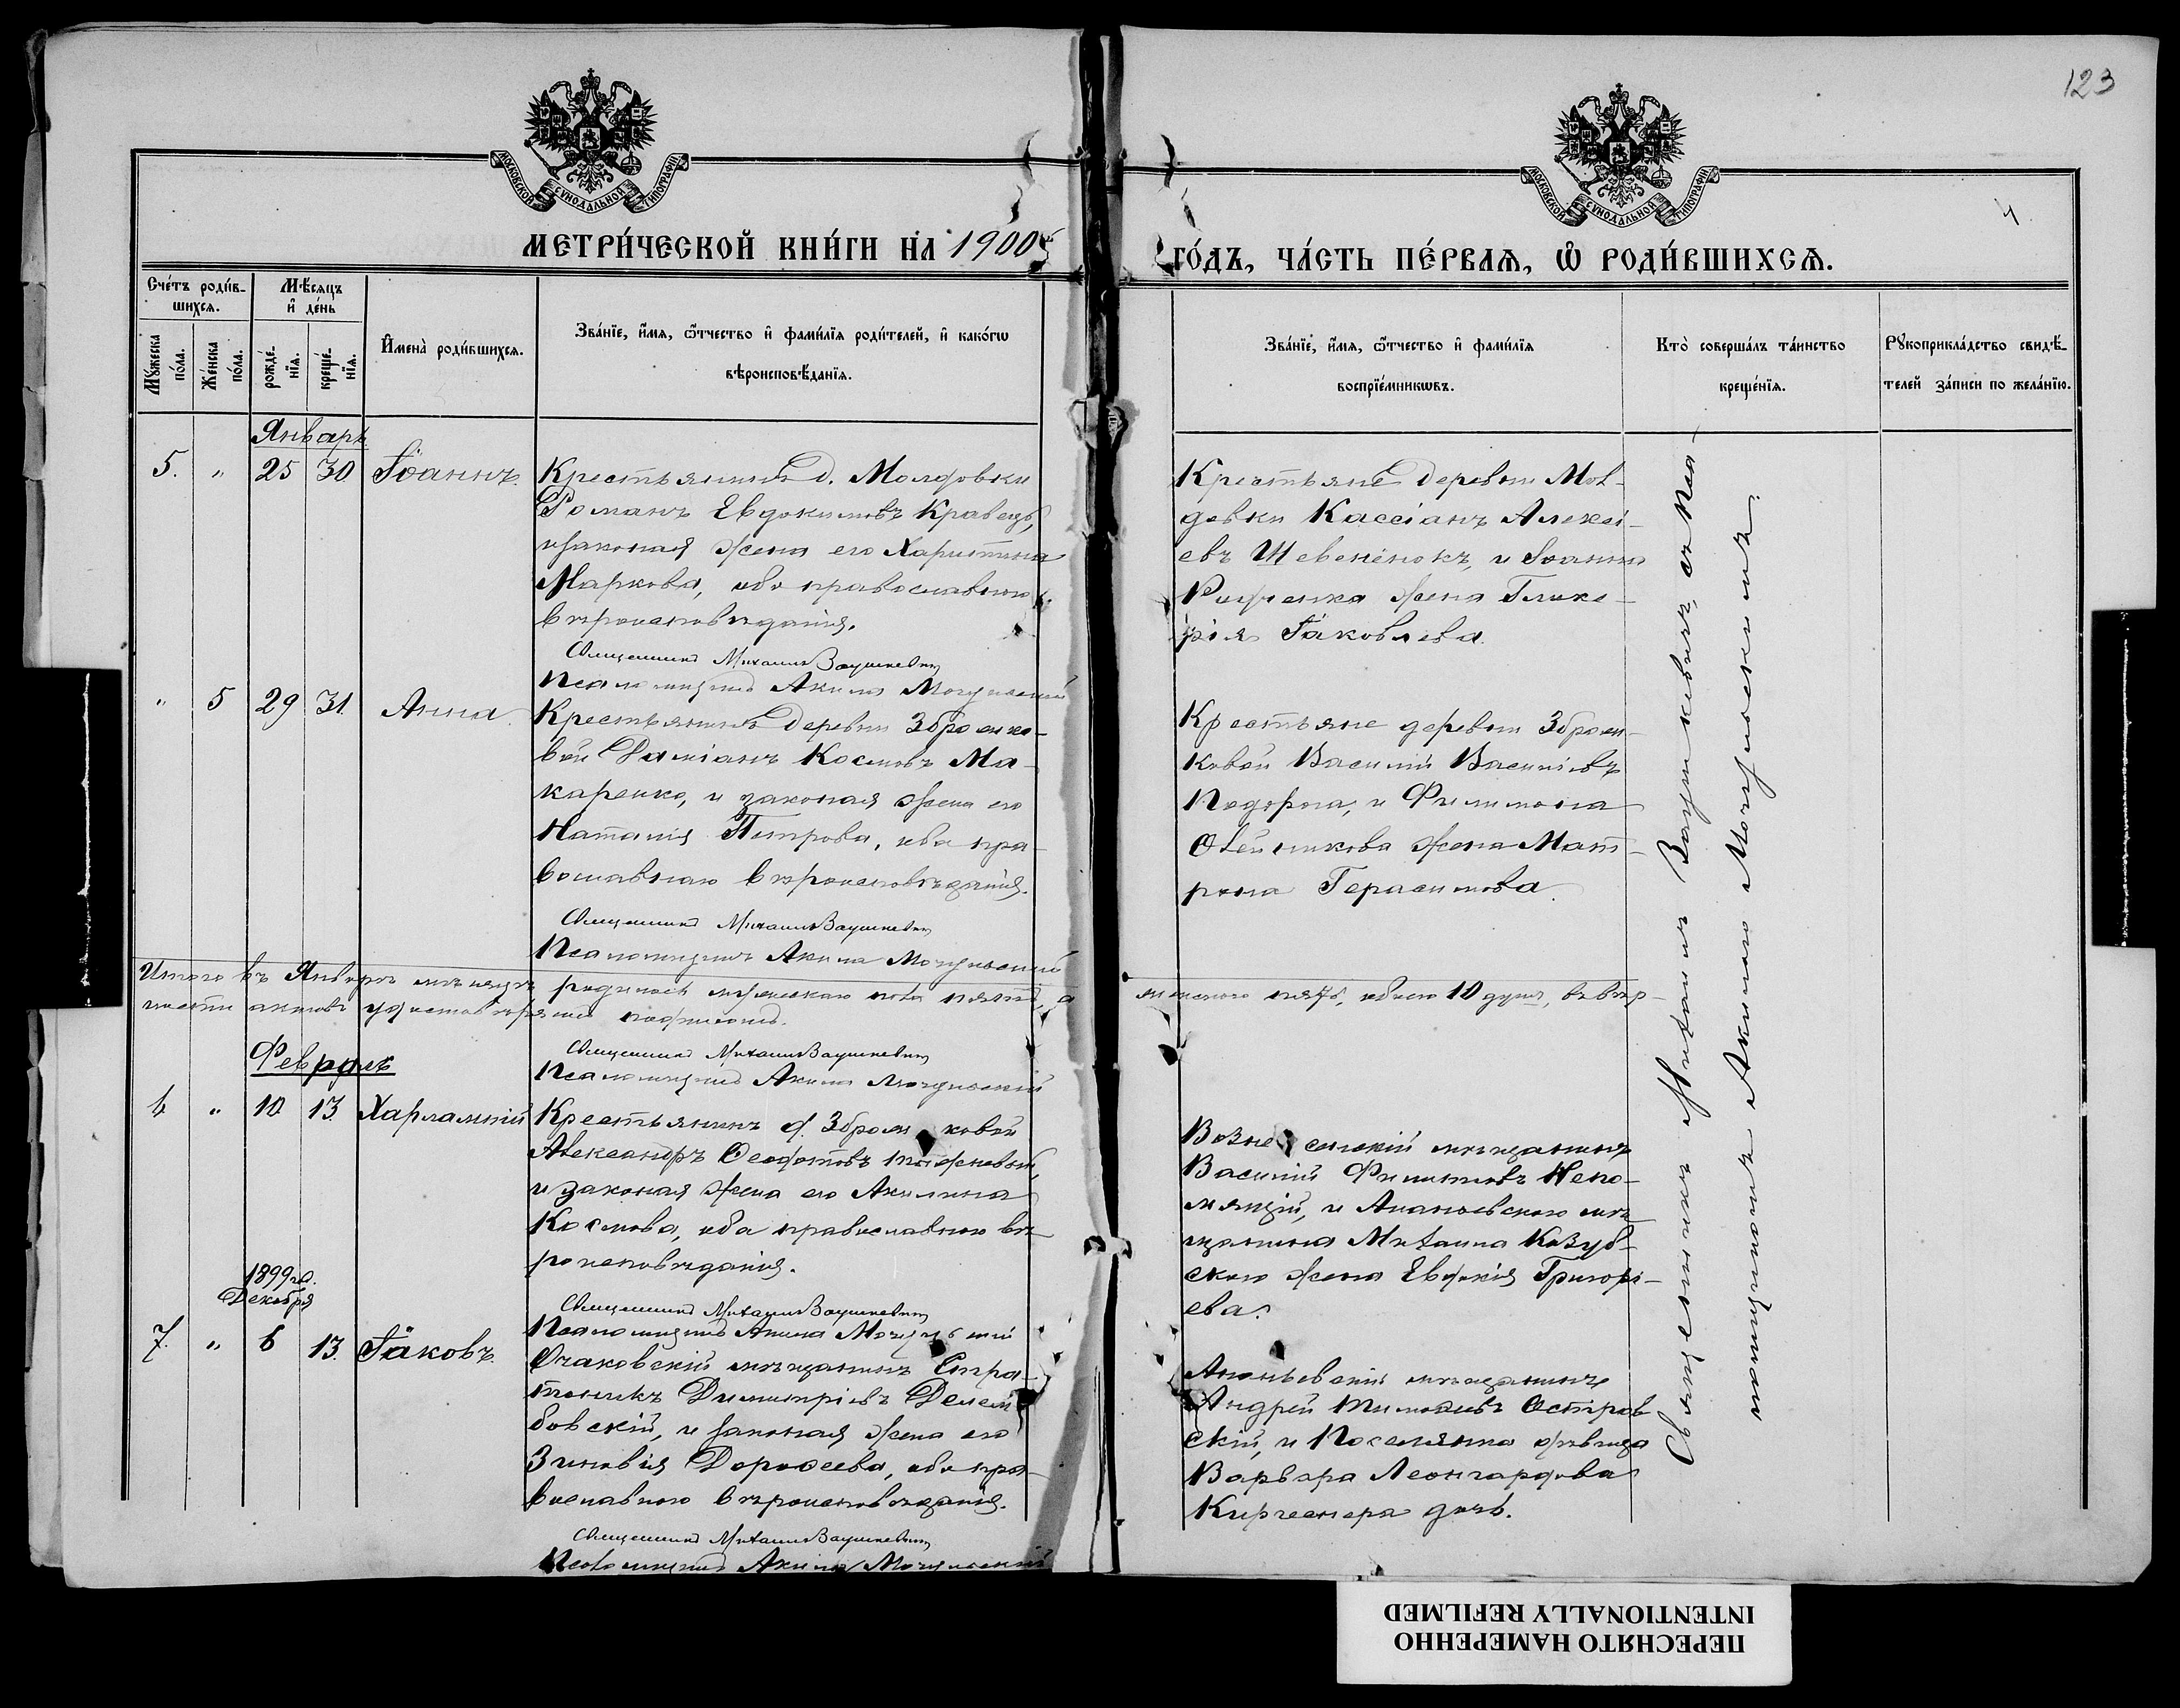 123
4
МОСКОВСКОЙ СѴНОДАЛЬНОЙ ТИПОГРАФІИ
МОСКОВСКОЙ СѴНОДАЛЬНОЙ ТИПОГРАФІИ
МЕТРИ́ЧЕСКОЙ КНИ́ГИ НА 1900
ГО́ДЪ, ЧА́СТЬ ПЕ́РВАѦ, Ѡ РОДИ́ВШИХСѦ.
Сче́тъ роди́в-
шихсѧ.
Мѣ́сяцъ
и҆ де́нь
Мꙋ́жеска
по́ла.
Же́нска
по́ла.
рожде́-
нїѧ.
креще́-
нїѧ.
И҆мена̀ роди́вшихсѧ.
Зва́нїе, и҆́мѧ, ѻ҆́тчество и҆ фами́лїѧ роди́телей, и҆ како́гѡ
вѣроисповѣ́данїѧ.
Зва́нїе, и҆́мѧ, ѻ҆́тчество и҆ фами́лїѧ
воспрїе́мникѡвъ.
Кто̀ соверша́лъ та́инство
креще́нїѧ.
Рꙋкоприкла́дство свидѣ́-
телей за́писи по жела́нїю.
Январь
5. " 25 30 Іоаннъ.
Крестьянинъ д. Молдовки
Романъ Евдокимовъ Кравецъ,
и законая жена его Харитина
Маркова, оба православнаго
вѣроисповѣданія.
Священникъ Михаилъ Ваушкевич
Псаломщикъ Акима Могульский
Крестьяне деревни Мол-
довки Кассіанъ Алексі-
евъ Шевенёнокъ, и Іоанна
жена Глике-
рія Іаковлева.
" 5 29 31 Анна.
Крестьянинъ деревни Зброшко-
вой Даміанъ Космовъ Ма-
каренко, и законая жена его
Наталія Петрова, оба пра-
вославнаго вѣроисповѣданія.
Священникъ Михаилъ Ваушкевич
Псаломщикъ Акима Могульский
Крестьяне деревни Зброш-
ковой Василій Васильевъ
Подорога, и Филимона
Олейникова жена Мат-
рона Герасимова.
Итого въ Январѣ мѣсяцѣ родилось мужескаго пола пять, а
женского пять, обоего 10 душъ, въ вѣр-
ности актовъ удостовѣряемъ подписомъ.
Священникъ Михаилъ Ваушкевич
Псаломщикъ Акима Могульский
Февраль
6 " 10 13 Харлампій
Крестьянинъ д. Зброшковой
Александръ Ѳеодотовъ
и законая жена его Акилина
Космова, оба православнаго вѣ-
роисповѣданія.
Священникъ Михаилъ Ваушкевич
Псаломщикъ Акима Могульский
Вознесенскій мѣщанинъ
Василій Филиповъ Непо-
мящій, и Ананьевскаго мѣ-
щанина Михаила Козуб-
скаго жена Евдокія Григорі-
ева.
1899 го.
Декабря
7. " 6 13. Іаковъ.
Очаковскій мѣщанинъ Стра-
тоникъ Димитріевъ Делем-
бовскій, и законая жена его
Зиновія Дорофеева, оба пра-
вославнаго вѣроисповѣданія.
Священникъ Михаилъ Ваушкевич
Псаломщикъ Акима Могульский
Ананьевскій мѣщанинъ
Андрей Тимофеевъ Остров-
скій, и Поселянка дѣвица
Варвара Леонгардова
Киргеснера дочь.
Священникъ Михаилъ Ваушкевичъ, съ Пса-
ломщикомъ Акимою Могульскимъ.
ПЕРЕСНЯТО НАМЕРЕННО
INTENTIONALLY REFILMED